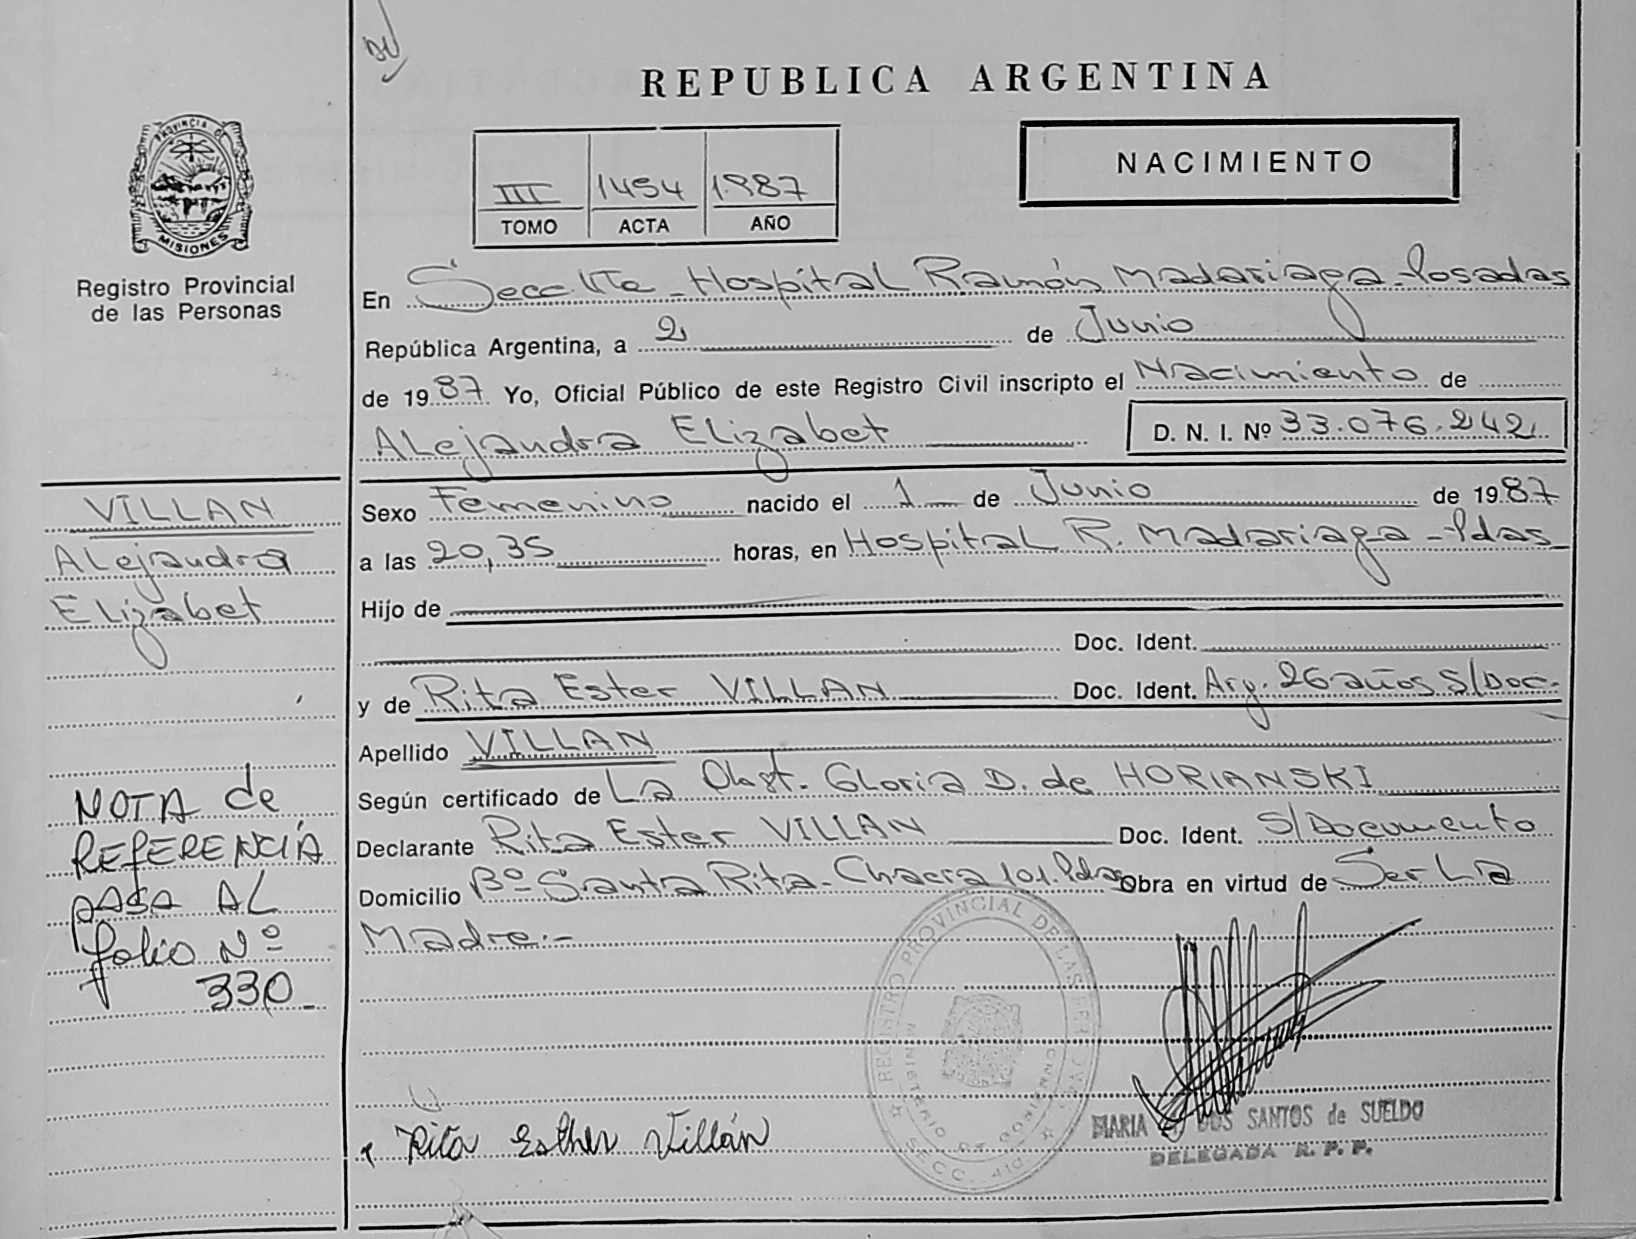 REPUBLICA ARGENTINA
NACIMIENTO
III 1454 1987
TOMO ACTA AÑO
PROVINCIA DE
MISIONES
Registro Provincial
de las Personas
En Secc VTe - Hospital Ramón Madariaga - Posadas
República Argentina, a 2 de Junio
de 1987 Yo, Oficial Público de este Registro Civil inscripto el Nacimiento de
Alejandra Elizabet D. N. I. Nº 33.076.242
Sexo Femenino nacido el 1 de Junio de 1987
a las 20,35 horas, en Hospital R. Madariaga - Pdas
Hijo de
Doc. Ident.
y de Rita Ester VILLAN Doc. Ident. Arg. 26 años S/Doc.
Apellido VILLAN
Según certificado de La Obst. Gloria D. de HORIANSKI
Declarante Rita Ester VILLAN Doc. Ident. S/Documento
Domicilio Bº Santa Rita - Chacra 101. Pdas Obra en virtud de Ser La
Madre.-
VILLAN
Alejandra
Elizabet
NOTA de
REFERENCIA
PASA AL
folio Nº
330
REGISTRO PROVINCIAL DE LAS PERSONAS
MINISTERIO DE GOBIERNO
SECC.
Rita Esther Villán
MARIA DOS SANTOS de SUELDO
DELEGADA R. P. P.